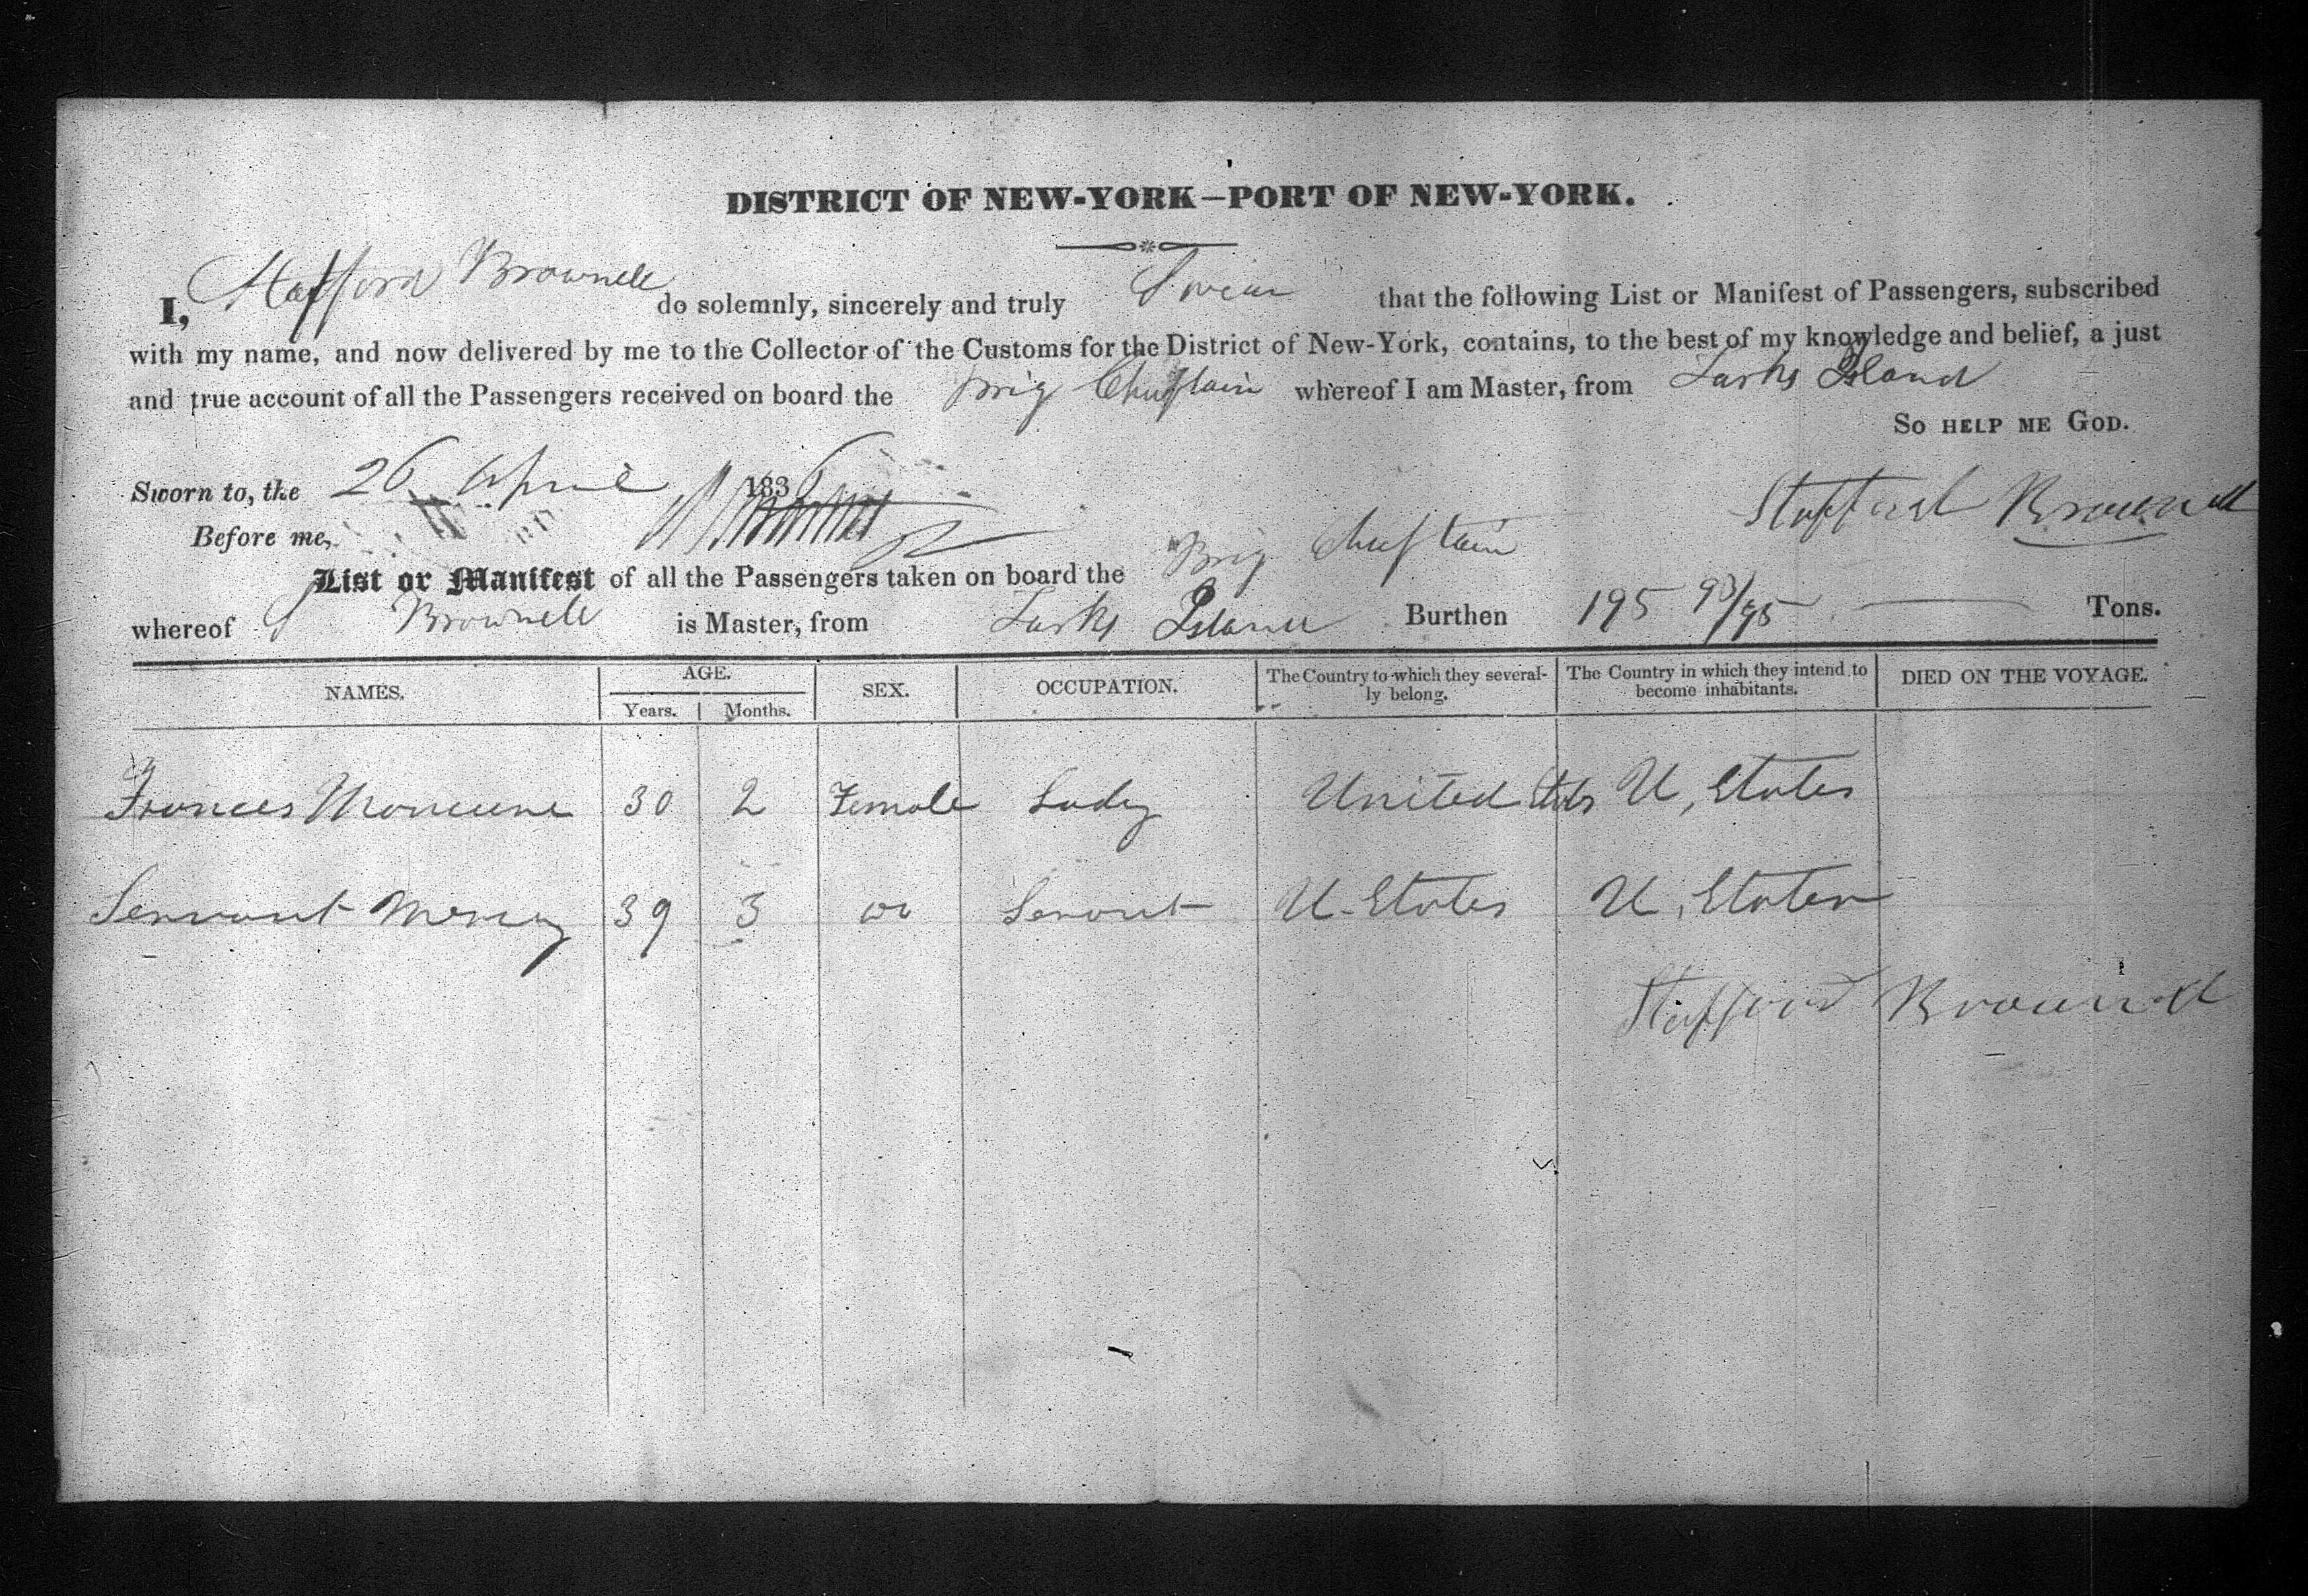 DISTRICT OF NEW-YORK—PORT OF NEW-YORK.
I, Stafford Brownell do solemnly, sincerely and truly Swear that the following List or Manifest of Passengers, subscribed
with my name, and now delivered by me to the Collector of the Customs for the District of New-York, contains, to the best of my knowledge and belief, a just
and true account of all the Passengers received on board the Brig Chieftain whereof I am Master, from Turks Island
So HELP ME GOD.
Sworn to, the 26 April 1836
Stafford Brownell
Before me,
List or Manifest of all the Passengers taken on board the Brig Chieftain
whereof S Brownell is Master, from Turks Island Burthen 195 93/95 Tons.
NAMES. AGE. SEX. OCCUPATION. The Country to which they severally belong. The Country in which they intend to become inhabitants. DIED ON THE VOYAGE.
Years. Months.
Frances 30 2 Female Lady United States U, States
Servant Mercy 39 3 do Servant U. States U, States
Stafford Brownell